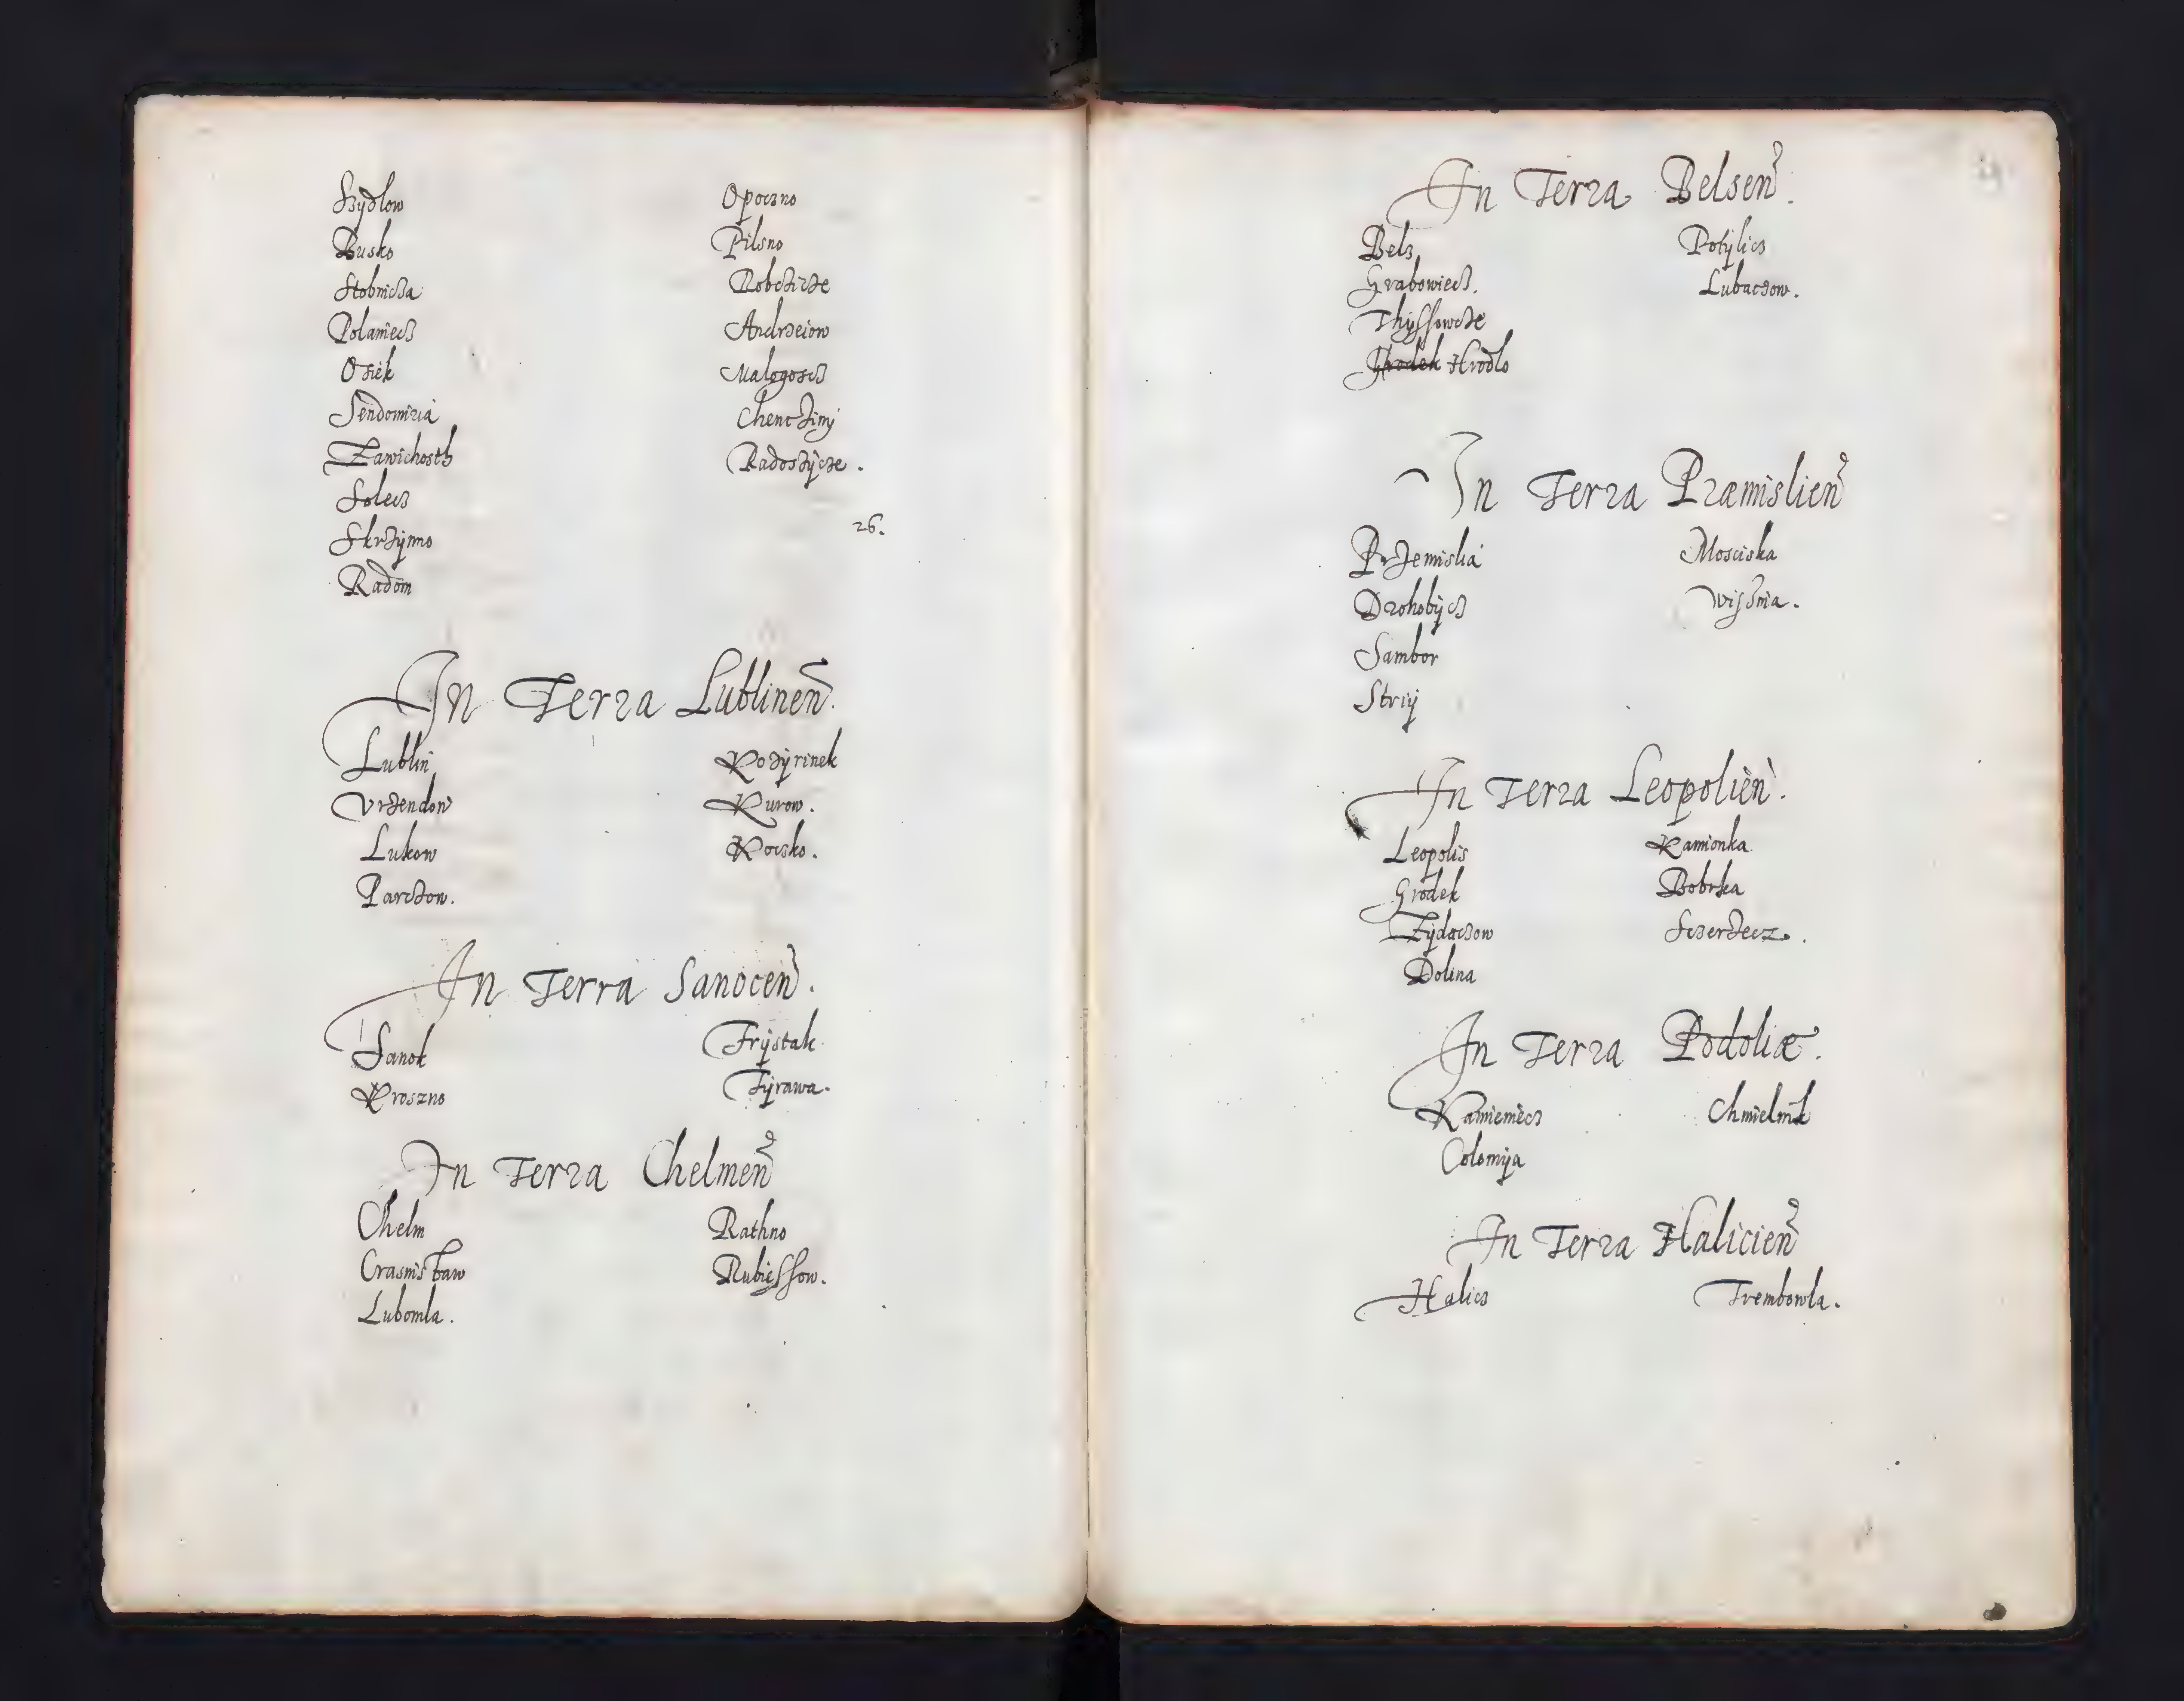 Szydlow
Busko
Stobnicza
Polaniecz
Osiek
Sendomiria
Zawichosth
Solecz
Skrzynno
Radom
Opoczno
Pilsno
Robczicze
Andrzeiow
Malogoscz
Chencziny
Radoszycze.
26.
In Terra Lublinen̄.
Lublin
Vrzendow
Lukow
Parczow.
Kozyrinek
Kurow.
Koczko.
In Terra Sanocen̄.
Sanok
Kroszno
Frystak
Tyrawa.
In Terra Chelmen̄
Chelm
Crasnisław
Lubomla.
Rathno
Rubiessow.
In Terra Belsen̄.
Belz
Grabowiecz.
Thyssowcze
Grodek Hrodlo
Potylicz
Lubaczow.
In Terra Præmislien̄
Przemislia
Drohobycz
Sambor
Strij
Mosciska
Wisznia.
In Terra Leopolien̄.
Leopolis
Grodek
Zydaczow
Dolina
Kamionka
Bobrka
Sczerzecz.
In Terra Podoliæ.
Kamieniecz
Colomija
Chmielnik
In Terra Halicien̄
Halicz
Trembowla.